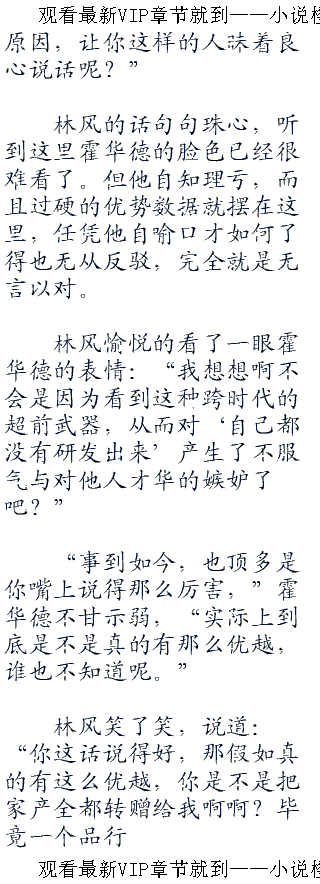 观看最新VIP章节就到——小说楼
原因，让你这样的人昧着良
心说话呢？”
林风的话句句珠心，听
到这里霍华德的脸色已经很
难看了。但他自知理亏，而
且过硬的优势数据就摆在这
里，任凭他自喻口才如何了
得也无从反驳，完全就是无
言以对。
林风愉悦的看了一眼霍
华德的表情：“我想想啊不
会是因为看到这种跨时代的
超前武器，从而对‘自己都
没有研发出来’产生了不服
气与对他人才华的嫉妒了
吧？”
“事到如今，也顶多是
你嘴上说得那么厉害，”霍
华德不甘示弱，“实际上到
底是不是真的有那么优越，
谁也不知道呢。”
林风笑了笑，说道：
“你这话说得好，那假如真
的有这么优越，你是不是把
家产全都转赠给我啊啊？毕
竟一个品行
观看最新VIP章节就到——小说楼